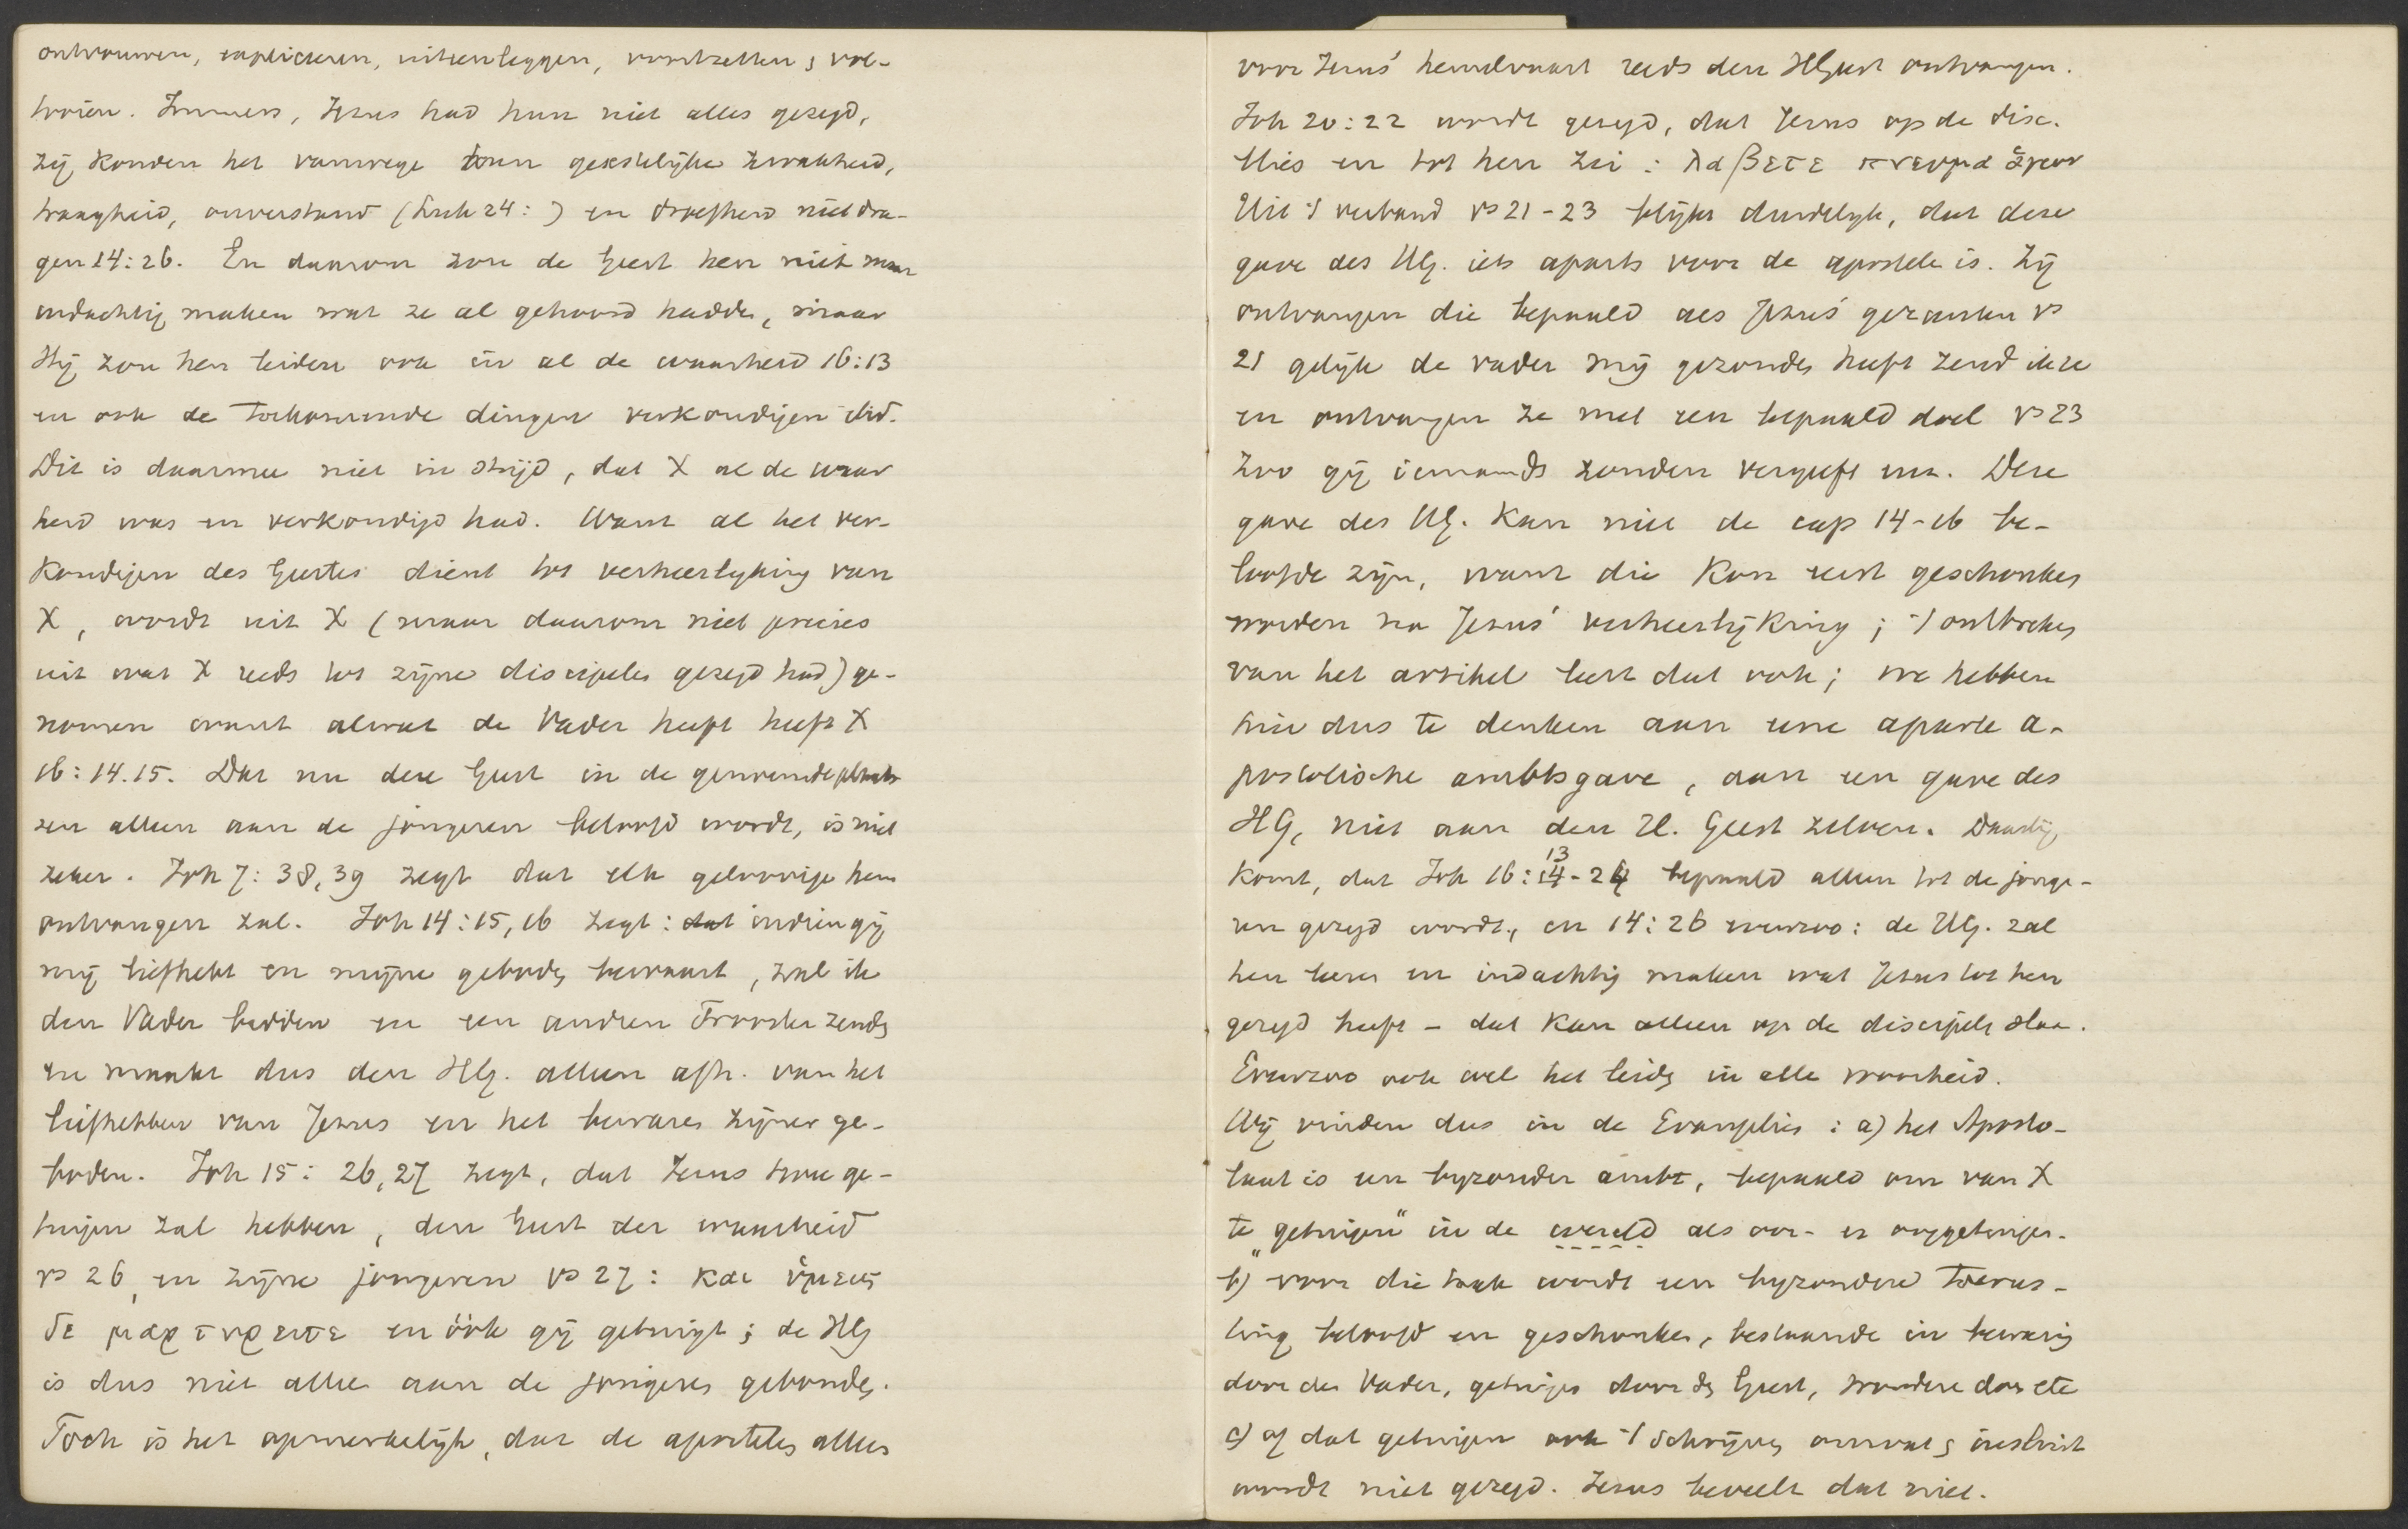 ontvouwen, expliceren, uiteenleggen, voortzetten & vol-
tooien. Immers, Jezus had hun niet alles gezegd,
zij konden het vanwege hun geestelijke zwakheid,
traagheid, onverstand (Luk 24: ) en droefheid niet dra-
gen 14:26. En daarom zou de Geest hen niet maar
indachtig maken wat ze al gehoord hadden, maar
Hij zou hen leiden ook in al de waarheid 16:13
en ook de toekomende dingen verkondigen ibid.
Dit is daarmee niet in strijd, dat X al de waar
heid was en verkondigd had. Want al het ver-
kondigen des Geestes dient tot verheerlijking van
X, wordt uit X (maar daarom niet precies
uit wat X reeds tot zijne discipelen gezegd had) ge-
nomen want alwat de Vader heeft heeft X
16:14.15. Dat nu deze Geest in de genoemde plaats
zen alleen aan de jongeren beloofd wordt, is niet
zeker. Joh 7:38,39 zegt dat elk geloovige hem
ontvangen zal. Joh 14:15,16 zegt: dat indien gij
mij liefhebt en mijne geboden bewaart, zal ik
den Vader bidden en een andren Trooster zenden
en maakt dus den HG. alleen afh. van het
liefhebben van Jezus en het bewaren zijner ge-
boden. Joh 15:26,27 zegt, dat Jezus twee ge-
tuigen zal hebben, den Geest der waarheid
vs 26, en zijne jongeren vs 27: και ὑμεις
δε μαρτυρειτε en óók gij getuigt; de HG
is dus niet alleen aan de jongeren gebonden.
Toch is het opmerkelijk, dat de apostelen alleen
voor Jezus' hemelvaart reeds den HGeest ontvangen.
Joh 20:22 wordt gezegd, dat Jezus op de disc.
blies en tot hen zei: λαβετε πνευμα ἁγιον
Uit 't verband vs 21-23 blijkt duidelijk, dat deze
gave des HG. iets aparts voor de apostelen is. Zij
ontvangen die bepaald als Jezus' gezanten vs
21 gelijk de vader mij gezonden heeft zend ik ze
en ontvangen ze met een bepaald doel vs 23
Zoo gij iemands zonden vergeeft enz. Deze
gave des HG. kan niet de cap 14-16 be-
loofde zijn, want die kon eerst geschonken
worden na Jezus' verheerlijking; 't ontbreken
van het artikel leert dat ook; we hebben
hier dus te denken aan eene aparte a-
postolische ambtsgave, aan een gave des
HG, niet aan den H. Geest zelven. Daarbij
komt, dat Joh 16:13-24 bepaald alleen tot de jonge-
ren gezegd wordt, en 14:26 evenzoo: de HG. zal
hen leeren en indachtig maken wat Jezus tot hen
gezegd heeft - dat kan alleen op de discipels slaan.
Evenzoo ook wel het leiden in alle waarheid.
Wij vinden dus in de Evangeliën: a) het Aposto-
laat is een bijzonder ambt, bepaald om van X
te „getuigen" in de wereld als oor- en ooggetuigen.
b) voor die taak wordt een bijzondere toerus-
ting beloofd en geschonken, bestaande in bewaring
door den Vader, getuigen door den Geest, wonderen doen etc
c) of dat getuigen ook 't schrijven omvat & insluit
wordt niet gezegd. Jezus beveelt dat niet.